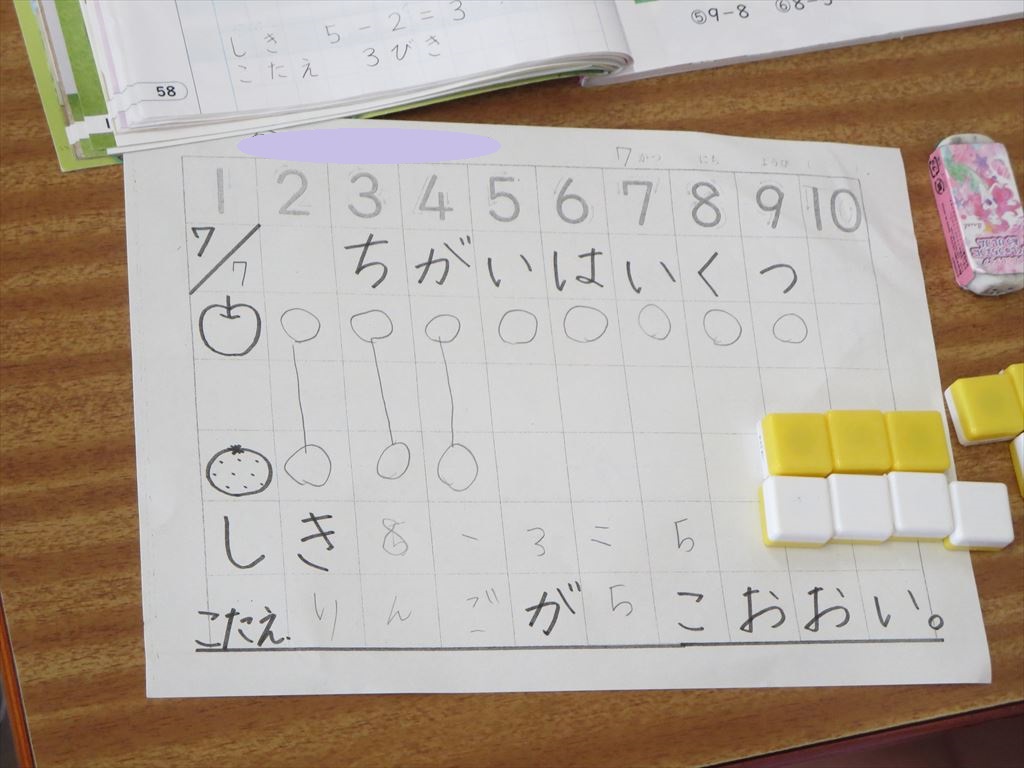 ⑤9-8 ⑥8-5
しき 5-2=3
こたえ 3びき
58
7がつ にち ようび
1 2 3 4 5 6 7 8 9 10
7/7 ちがいはいくつ
しき 8-3=5
こたえ. りんごが5こおおい。